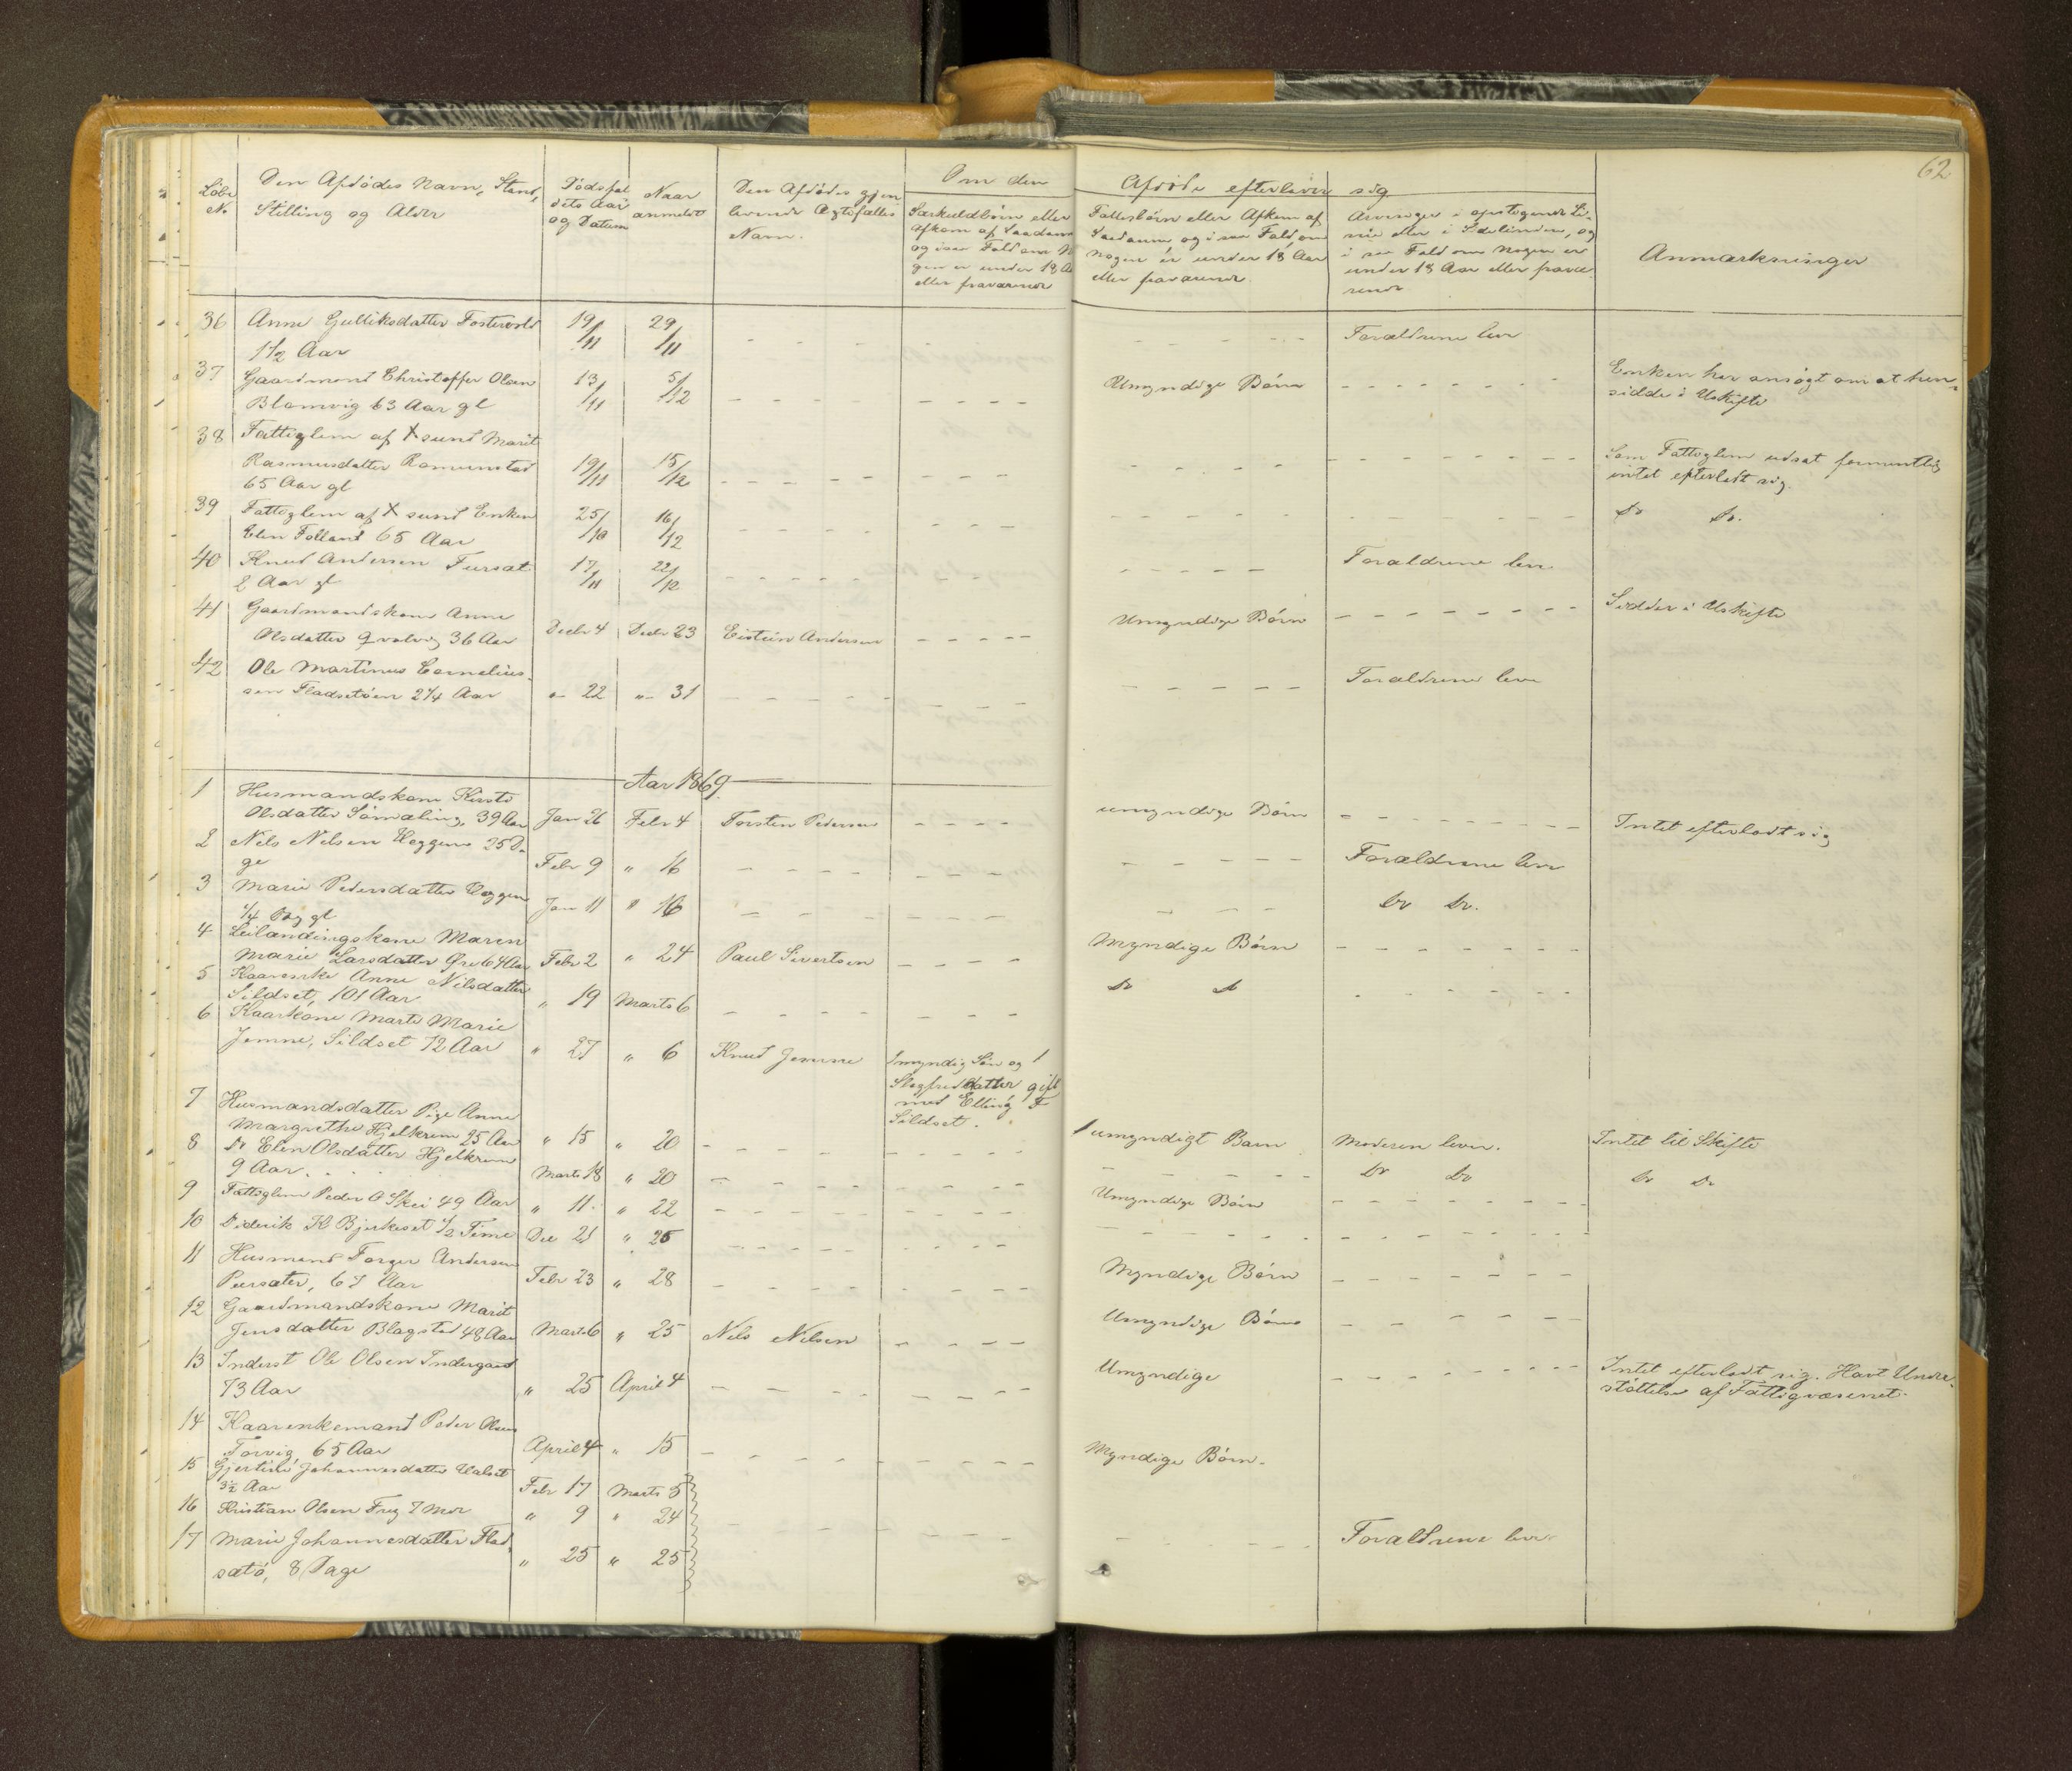 62
Løbe Den Afdødes Navn, Stand, Dødsfal Naar Den Afdødes gjen Om den Afdøde efterlever sig
No Stilling og Alder dets Aar anmeldt levende Ægtefælles Særkuldbørn eller Fællesbørn eller Afkom af Arvinger i opstigende Li- Anmærkninger
og Datum Navn. Afkom af Saadanne Saadanne, og i saa Fald, om nie eller i Sidelinien, og
og i saa Fald om No nogen er under 18 Aar i saa Fald om Nogen er
gen er under 18 Aa eller fraværende under 18 Aar eller fravæ
eller fraværende rende
36 Anne Gulliksdatter Fostervold 19/11 29/11 Forældrene leve
1 1/2 Aar
37 Gaardmand Christoffer Olsen 13/11 5/12 Umyndige Børn Enken har ansøgt om at hen-
Blomvig 63 Aar gl sidde i Uskifte
38 Fattiglem af Xsund Marit
Rasmusdatter Romunstad 19/11 15/12 Som Fattiglem udsat formentlig
65 Aar gl intet efterladt sig.
39 Fattiglem af Xsund Enken 25/10 16/12 Do Do.
Elen Folland 65 Aar
40 Knud Andersen Fursæt 17/11 22/12 Forældrene leve
2 Aar gl
41 Gaardmandskone Anne
Olsdatter Qvalvig 36 Aar Decbr 4 Decbr 23 Eistein Andersen Umyndige Børn Sidder i Uskifte
42 Ole Martinus Cornelius-
sen Fladsetøen 2 1/4 Aar " 22 " 31 Forældrene leve
Aar 1869
1 Husmandskone Kirsti
Olsdatter Sømæling, 39 Aar Jan 26 Febr 4 Torsten Pedersen umyndige Børn Intet efterladt sig
2 Nels Nelsen Heggem 25 Da-
ge Febr 9 " 16 Forældrene leve
3 Marie Pedersdatter Heggem Jan 11 " 16 Do Do.
1/4 Dag gl
4 Leilændingskone Maren
Marie Larsdatter Øre 64 Aar Febr 2 " 24 Paul Sivertsen Myndige Børn
5 Kaarenke Anne Nilsdatter
Sildset, 101 Aar " 19 Marts 6 Do Do
6 Kaarkone Marte Marie
Jemne, Sildset 72 Aar " 27 " 6 Knud Jemne 1 myndig Søn og 1
Slegfreddatter gift
med Elling F
Sildset.
7 Husmandsdatter Pige Anne
Margrethe Hjelkrem 25 Aar " 15 " 20 1 umyndigt Barn Moderen lever. Intet til Skifte
8 Do Elen Olsdatter Hjelkrem
9 Aar. Marts 18 " 20 Do Do Do Do
9 Fattiglem Peder O Skei 49 Aar " 11 " 22 Umyndige Børn
10 Diderik K Bjerkeset 1/2 Time Dec 21 " 25
11 Husmand Torger Andersen
Pursæter, 67 Aar Febr 23 " 28 Myndige Børn
12 Gaardmandskone Marit
Jensdatter Blagstad 48 Aar Marts 6 " 25 Nils Nilsen Umyndige Børn
13 Inderst Ole Olsen Indergaard
73 Aar " 25 April 4 Umyndige Intet efterladt sig. Havt Under-
støttelse af Fattigvæsenet.
14 Kaarenkemand Peder Olsen
Torvig, 65 Aar April 4 " 15 Myndige Børn.
15 Johannesdatter Halset
3 1/2 Aar Febr 17 Marts 5
16 Kristian Olsen 7 Mdr " 9 " 24
17 Marie Johannesdatter Flad-
sætø, 8 Dage " 25 " 25 Forældrene leve